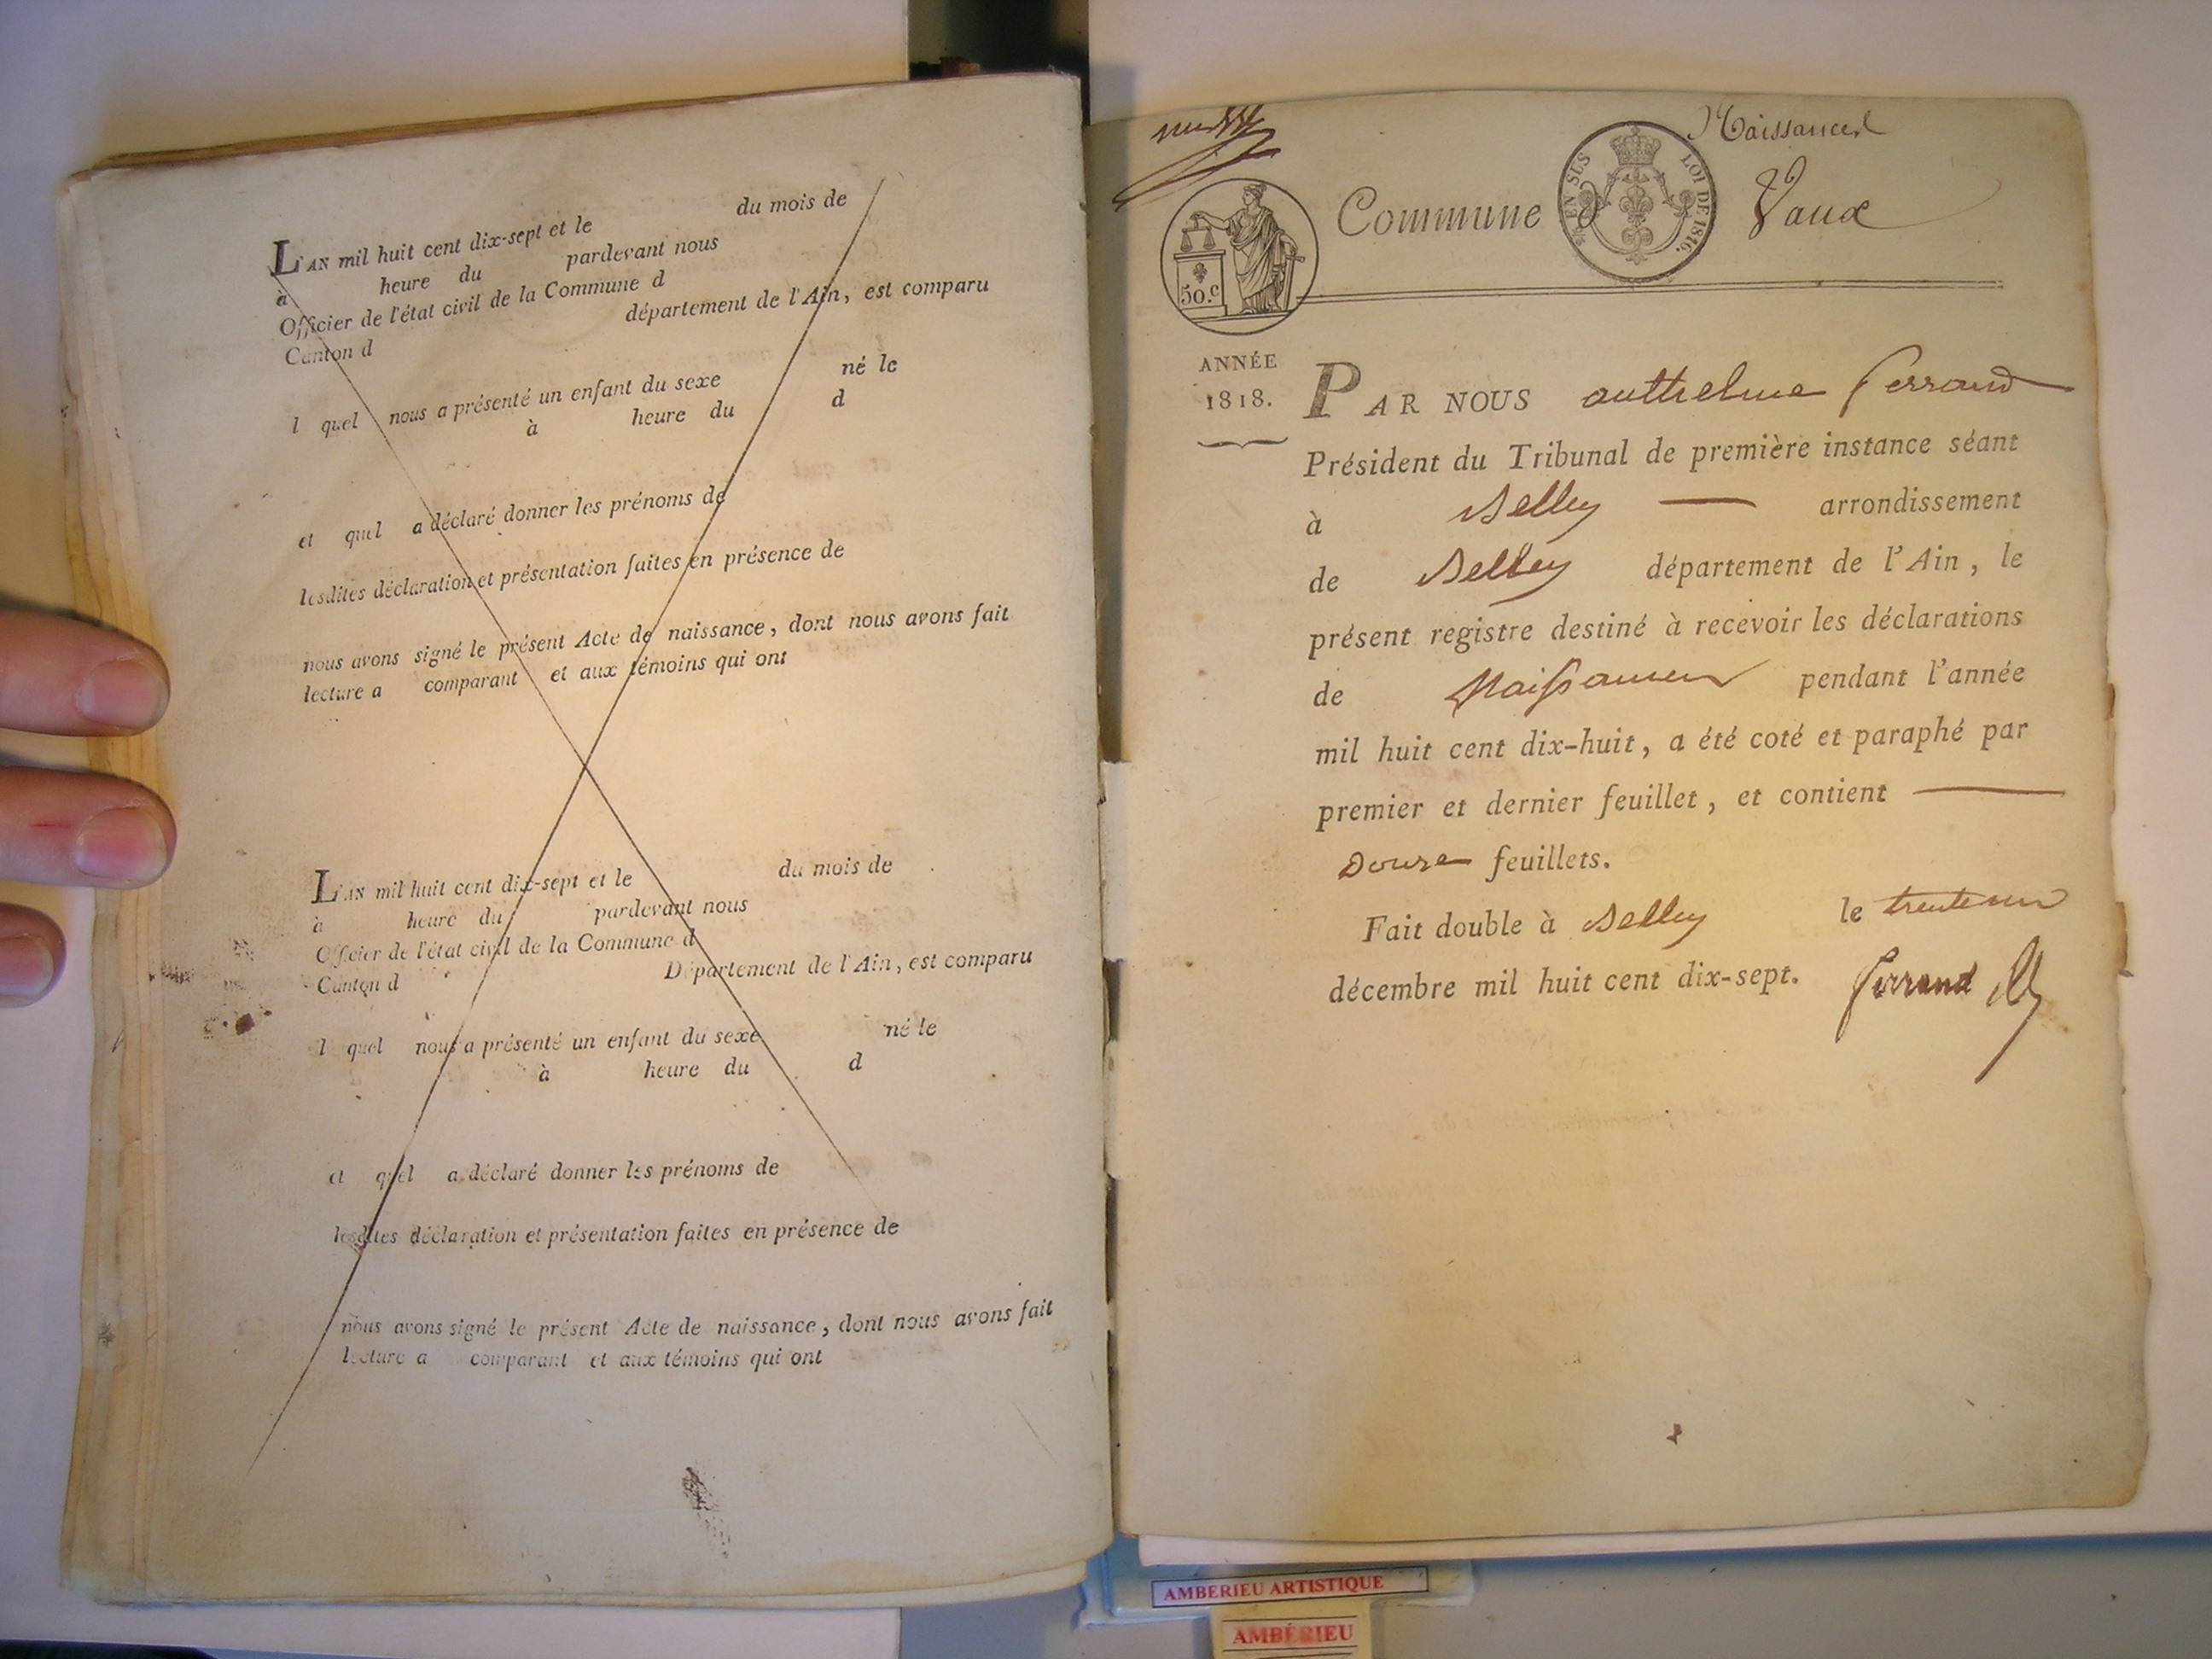 L'AN mil huit cent dix-sept et le du mois de
à heure du pardevant nous
Officier de l'état civil de la Commune d
Canton d département de l'Ain, est comparu
l quel nous a présenté un enfant du sexe né le
à heure du d
et quel a déclaré donner les prénoms de
lesdites déclaration et présentation faites en présence de
nous avons signé le présent Acte de naissance, dont nous avons fait
lecture a comparant et aux témoins qui ont
L'AN mil huit cent dix-sept et le du mois de
à heure du pardevant nous
Officier de l'état civil de la Commune d
Canton d Département de l'Ain, est comparu
l quel nous a présenté un enfant du sexe né le
à heure du d
et quel a déclaré donner les prénoms de
lesdites déclaration et présentation faites en présence de
nous avons signé le présent Acte de naissance, dont nous avons fait
lecture a comparant et aux témoins qui ont
Naissances
EN SUS LOI DE 1816.
Commune de Vaux
50.c
ANNÉE
1818.
PAR NOUS anthelme ferrand
Président du Tribunal de première instance séant
à Belley arrondissement
de Belley département de l'Ain, le
présent registre destiné à recevoir les déclarations
de Naissances pendant l'année
mil huit cent dix-huit, a été coté et paraphé par
premier et dernier feuillet, et contient
Douze feuillets.
Fait double à Belley le trente un
décembre mil huit cent dix-sept. ferrand
AMBERIEU ARTISTIQUE
AMBÉRIEU